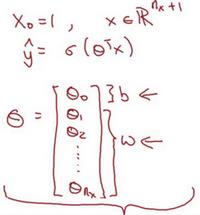 x₀ = 1 , x ∈ ℝⁿˣ⁺¹
ŷ = σ(θᵀx)
θ = [θ₀ θ₁ θ₂ ⋮ θₙₓ] } b ←
} w ←